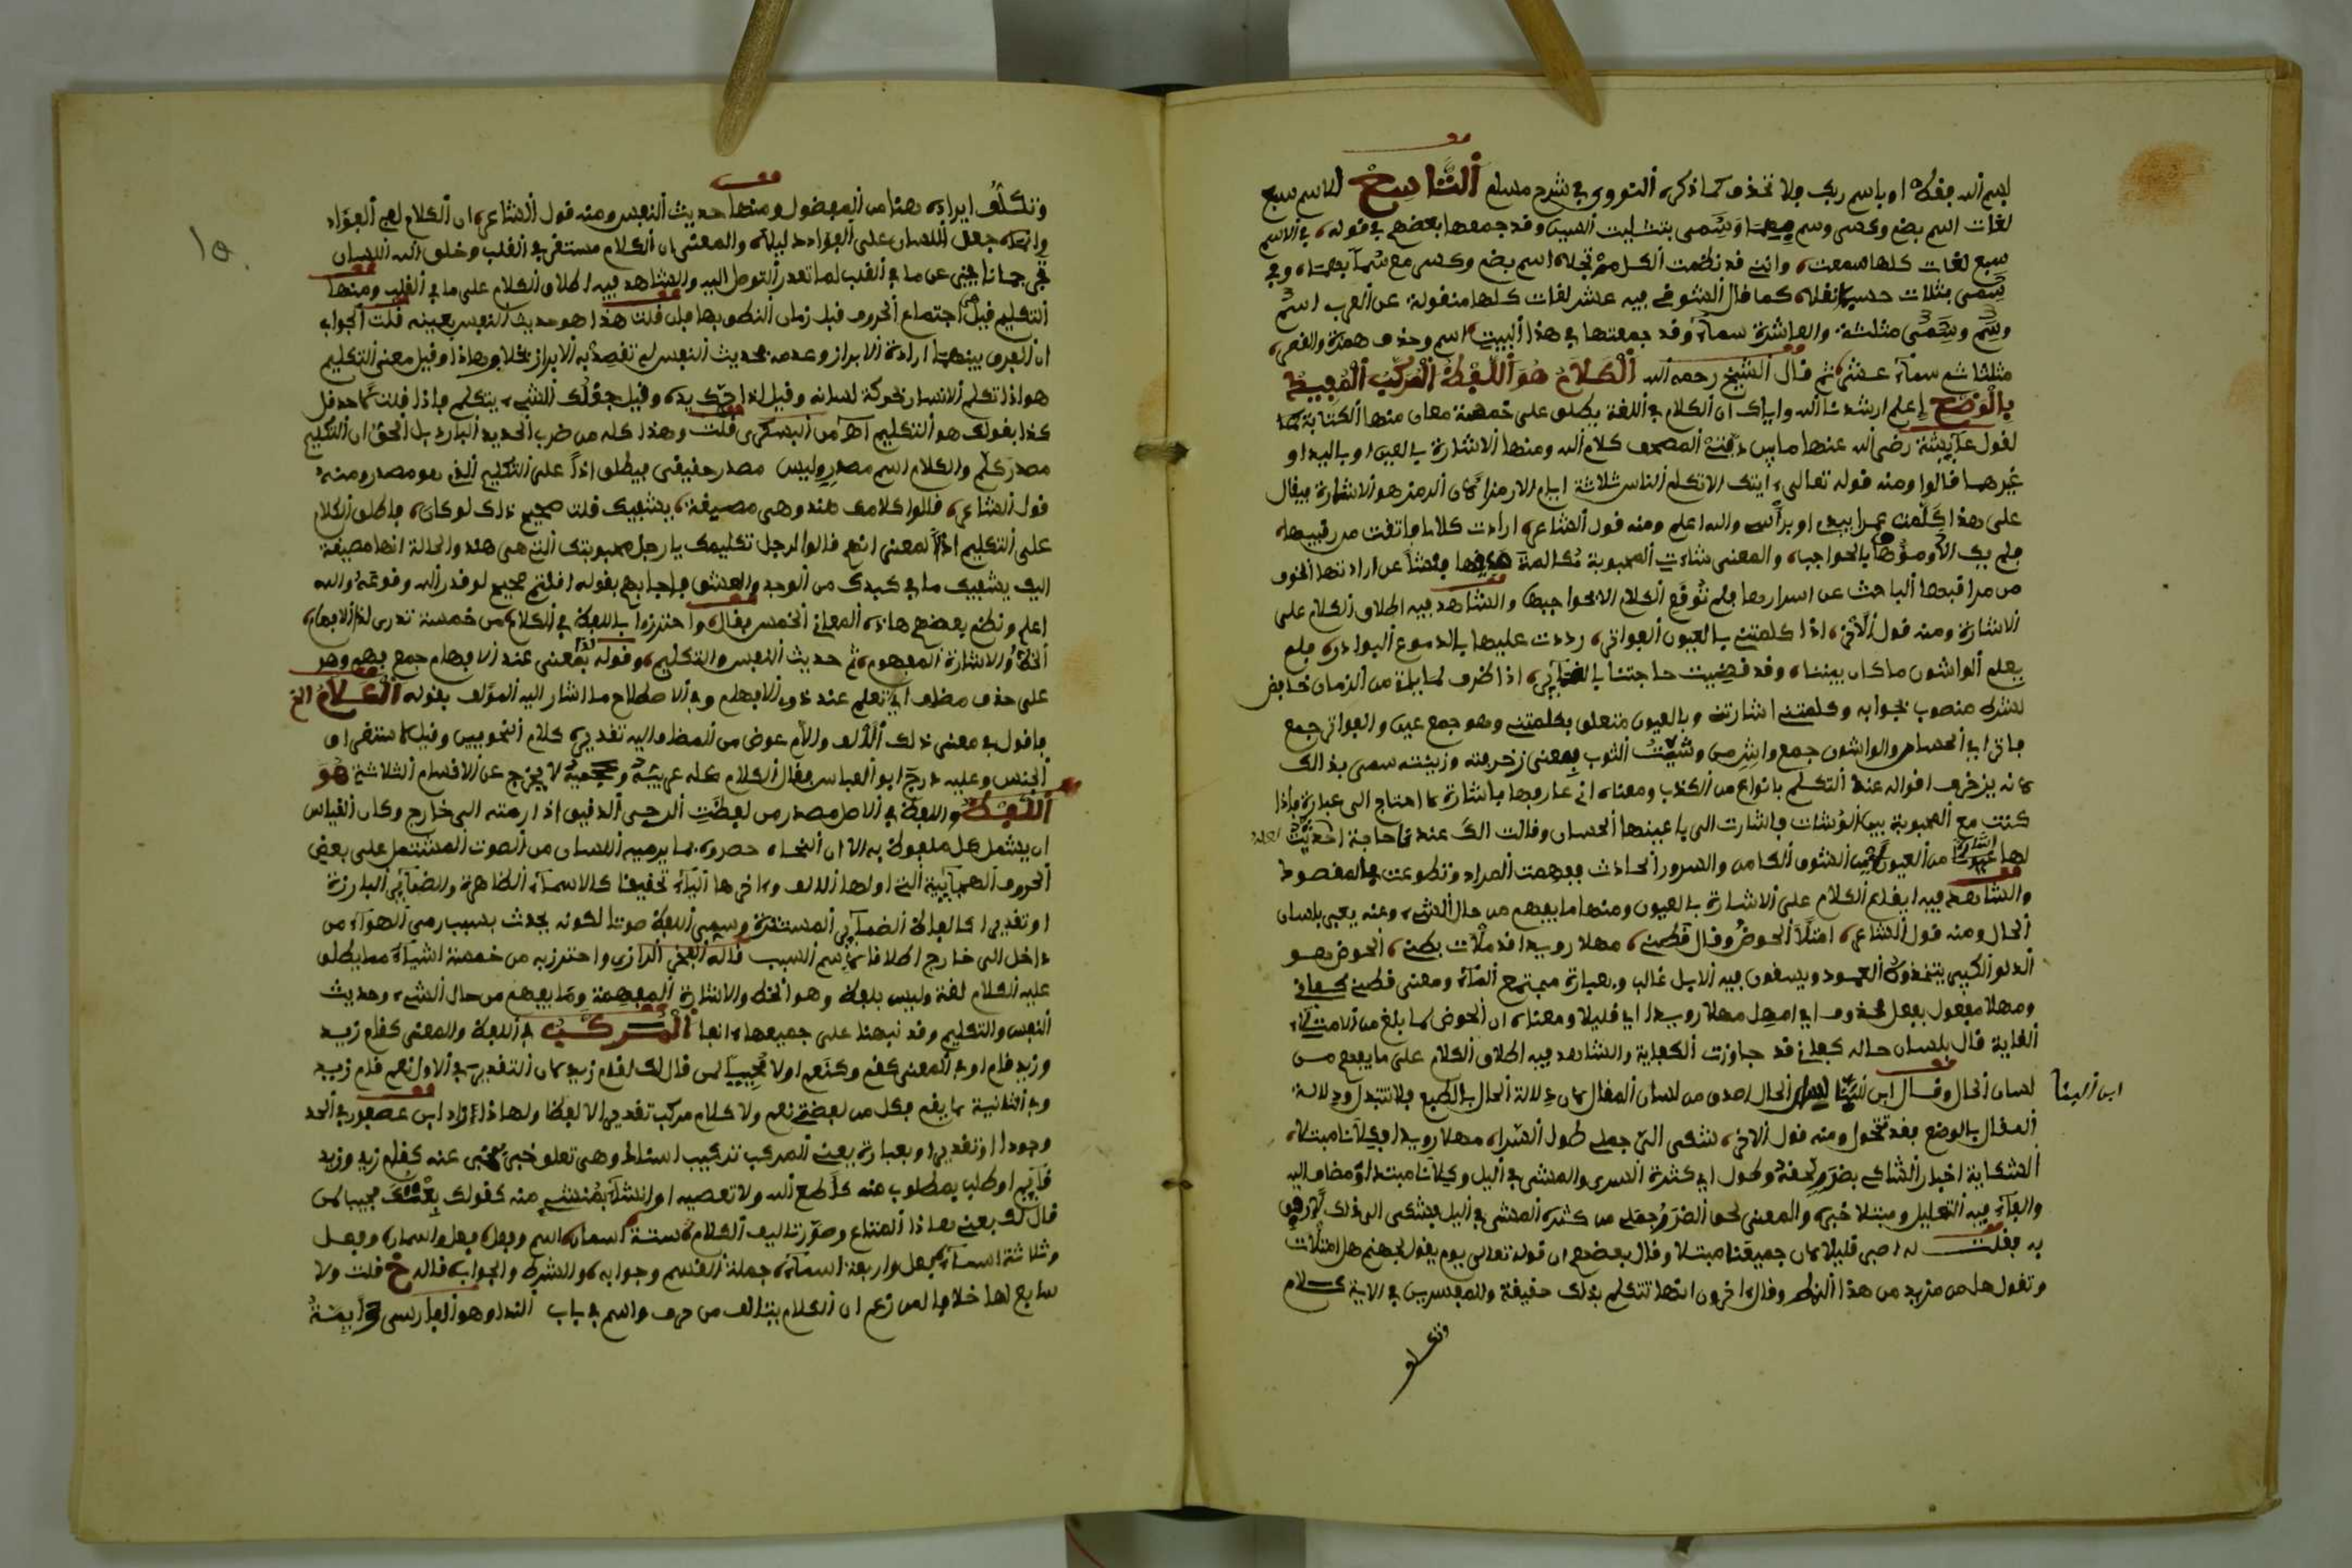 بسم الله فقط او باسم ربك فلا تحذف كما ذكره النووي في شرح مسلم التاسع الاسم سبع
لغات اسم بضم وكسر وسم وسمى بتثليث السين وقد جمعها بعضهم في قوله في الاسم
سبع لغات كلها سمعت وانني قد نظمت الكل اسم بضم وكسر مع
كما قال الشوفي فيه عشر لغات كلها منقولة عن العرب اسم
وسم وسمى مثلثة والعاشرة سماء وقد جمعتها في هذا البيت اسم وحذف همزة والقصر
مثلثا مع سماء عشر ثم قال الشيخ رحمه الله الكلام هو اللفظ المركب المفيد
بالوضع اعلم ارشدنا الله واياك ان الكلام في اللغة يطلق على خمسة معان منها الكتابة
لقول عايشة رضي الله عنها ما بين دفتي المصحف كلام الله ومنها الاشارة بالعين او باليد او
غيرهما قالوا ومنه قوله تعالى ءايتك الا تكلم الناس ثلاثة ايام الا رمزا لان الرمز هو الاشارة فيقال
على هذا كلمت عمرا بيد او براس والله اعلم ومنه قول الشاعر ارادت كلاما فاتقت من رقيبها
فلم يك الا ومؤها بالحواجب والمعنى شاءت المحبوبة مكالمة فنشأ عن ارادتها الخوف
من مراقبها الباحث عن اسرارها فلم توقع الكلام الا بحواجبها والشاهد فيه اطلاق الكلام على
الاشارة ومنه قول الاخر اذا كلمتني بالعيون الفواتر رددت عليها بالدموع البوادر فلم
يعلم الواشون ما كان بيننا وقد قضيت حاجتنا بالضمائر اذا ظرف لما يستقبل من الزمان خافض
لشرطه منصوب بجوابه وكلمتني اشارتني وبالعيون متعلق بكلمتني وهو جمع عين والفواتر جمع
فاتر اي الحسان والواشون جمع واش من وشيت الثوب بمعنى زخرفته وزينته سمي بذالك
لانه يزخرف اقواله عند التكلم بانواع من الكذب ومعناه اني عارف بها باشارة لا احتاج الى عبارة فاذا
كنت مع المحبوبة بين الوشات فاشارت الي باعينها الحسان وقالت الك عندنا حاجة
لها من العيون الشوق الكامن والسرور الحادث ففهمت المراد وتطوعت بالمقصود
والشاهد فيه ايقاع الكلام على الاشارة بالعيون ومنها ما يفهم من حال الشيء وعنه يعبر بلسان
الحال ومنه قول الشاعر امتلأ الحوض وقال قطني مهلا رويدا قد ملأت بطني الحوض هو
الدلو الكبير يتخذونه العمود ويسقون فيه الابل غالبا وبعبارة مجتمع الماء ومعنى قطني كفاني
ومهلا مفعول بفعل محذوف اي امهل مهلا رويدا اي قليلا ومعناه ان الحوض لما بلغ من الامتلاء
الغاية قال بلسان حاله كفاني قد جاوزت الكفاية والشاهد فيه اطلاق الكلام على ما يفهم من
لسان الحال وقال ابن البنا لسان الحال اصدق من لسان المقال لان دلالة الحال بالطبع فلا تتبدل ودلالة
ابن البنا
المقال بالوضع فقد تتحول ومنه قول الاخر شكى الي جملي طول السرا مهلا رويدا فكلانا مبتلى
الشكاية اخبار الشاكي بضر لحقه وطول اي كثرة السرى والمشي في اليل وكلانا مبتدأ ومضاف اليه
والفاء فيه التعليل ومبتلا خبره والمعنى لحق الضر جملي من كثرة المشي في اليل فشكى الي ذلك
به فقلت له اصبر قليلا لان جميعنا مبتلا وقال بعضهم ان قوله تعالى يوم يقول لجهنم هل امتلات
وتقول هل من مزيد من هذا النمط وقال اخرون انها تتكلم بذلك حقيقة وللمفسرين في الاية كلام
وتكلف
وتكلف ايراده هنا من الفضول ومنها حديث النفس ومنه قول الشاعر ان الكلام لفي الفؤاد
وانما جعل اللسان على الفؤاد دليلا والمعنى ان الكلام مستقر في القلب وخلق الله اللسان
ترجمانا يعبر عن ما في القلب لما تعذر التوصل اليه والشاهد فيه اطلاق الكلام على ما في القلب ومنها
التكليم قبل اجتماع الحروف قبل زمان النطق بها فان قلت هذا هو حديث النفس بعينه قلت الجواب
ان الفرق بينهما ارادة الابراز وعدمه فحديث النفس لم تقصد به الابراز بخلاف هاذا وقيل معنى التكليم
هو اذا تكلم الانسان بحركة لسانه وقيل اذا حرك يده وقيل
كذا بقولك هو التكليم اهـ من البسكري قلت وهذا كله من ضرب الحديد البارد بل الحق ان التكليم
مصدر كلم والكلام اسم مصدر وليس مصدر حقيقي فيطلق اذا على التكليم الذي هو مصدر ومنه
قول الشاعر قالوا كلامك هندا وهي مصيغة يشفيك قلت صحيح ذلك لو كان فاطلق الكلام
على التكليم اذ المعنى انهم قالوا لرجل تكليمك يا رجل محبوبتك التي هي هند والحالة انها مصيغة
اليك يشفيك ما في كبدك من الوجد والعشق فاجابهم بقوله ما قلتم صحيح لو قدر الله وقوعه والله
اعلم ونظم بعضهم هاذه المعاني الخمس فقال واحترزوا باللفظ في الكلام من خمسة تدرى لذا الافهام
الخط والاشارة المفهوم ثم حديث النفس والتكليم وقوله بمعنى عند الافهام جمع فهم وهو
على حذف مضاف اي تعلم عند ذوي الافهام وفي الاصطلاح ما اشار اليه المؤلف بقوله الكلام الخ
فاقول في معنى ذلك الالف والام عوض من المضاف اليه تقديره كلام النحويين وقيل لاستغراق
الجنس وعليه درج ابو العباس فقال الكلام كله عربية وعجمية لا يخرج عن الاقسام الثلاثة هو
اللفظ واللفظ في الاصل مصدر من لفظت الرحى الدقيق اذا رمته الى خارج وكان القياس
ان يشمل كل ملفوظ به الا ان النحاة حصروه بما يرميه اللسان من الصوت المشتمل على بعض
الحروف الهجائية التي اولها الالف وءاخرها الياء تحقيقا كالاسماء الظاهرة والضمائر البارزة
او تقديرا كالفاظ الضمائر المستترة وسمي اللفظ صوتا لكونه يحدث بسبب رمي الهواء من
داخل الى خارج اطلاقا لاسم السبب قاله الفخر الرازي واحترز به من خمسة اشياء مما يطلق
عليه الكلام لغة وليس بلفظ وهو الخط والاشارة المفهمة وما يفهم من حال الشيء وحديث
النفس والتكليم وقد نبهنا على جميعها ءانفا المركب في اللفظ والمعنى كقام زيد
وزيد قام او في المعنى كقم وكنعم اولا مجيبا لمن قال لك اقام زيد لان التقدير في الاول نعم قام زيد
وفي الثانية لم يقم فكل من لفظتي نعم ولا كلام مركب تقديرا لا لفظا ولهاذا زاد ابن عصفور في الحد
وجودا او تقديرا وبعبارة يعني المركب تركيب اسناد وهي تعلق خبر بمخبر عنه كقام زيد وزيد
قائم او طلب بمطلوب منه كاطع الله ولا تعصيه او انشاء بمنشىء منه كقولك بعتك مجيبا لمن
قال لك بعني هاذا المتاع وصور تاليف الكلام ستة اسمان اسم وفعل فعل واسمان وفعل
وثلاثة اسماء فعل واربعة اسماء جملة القسم وجوابه والشرط والجواب قاله خ قلت ولا
سابع لها خلافا لمن زعم ان الكلام يتالف من حرف واسم في باب النداء وهو الفارسي